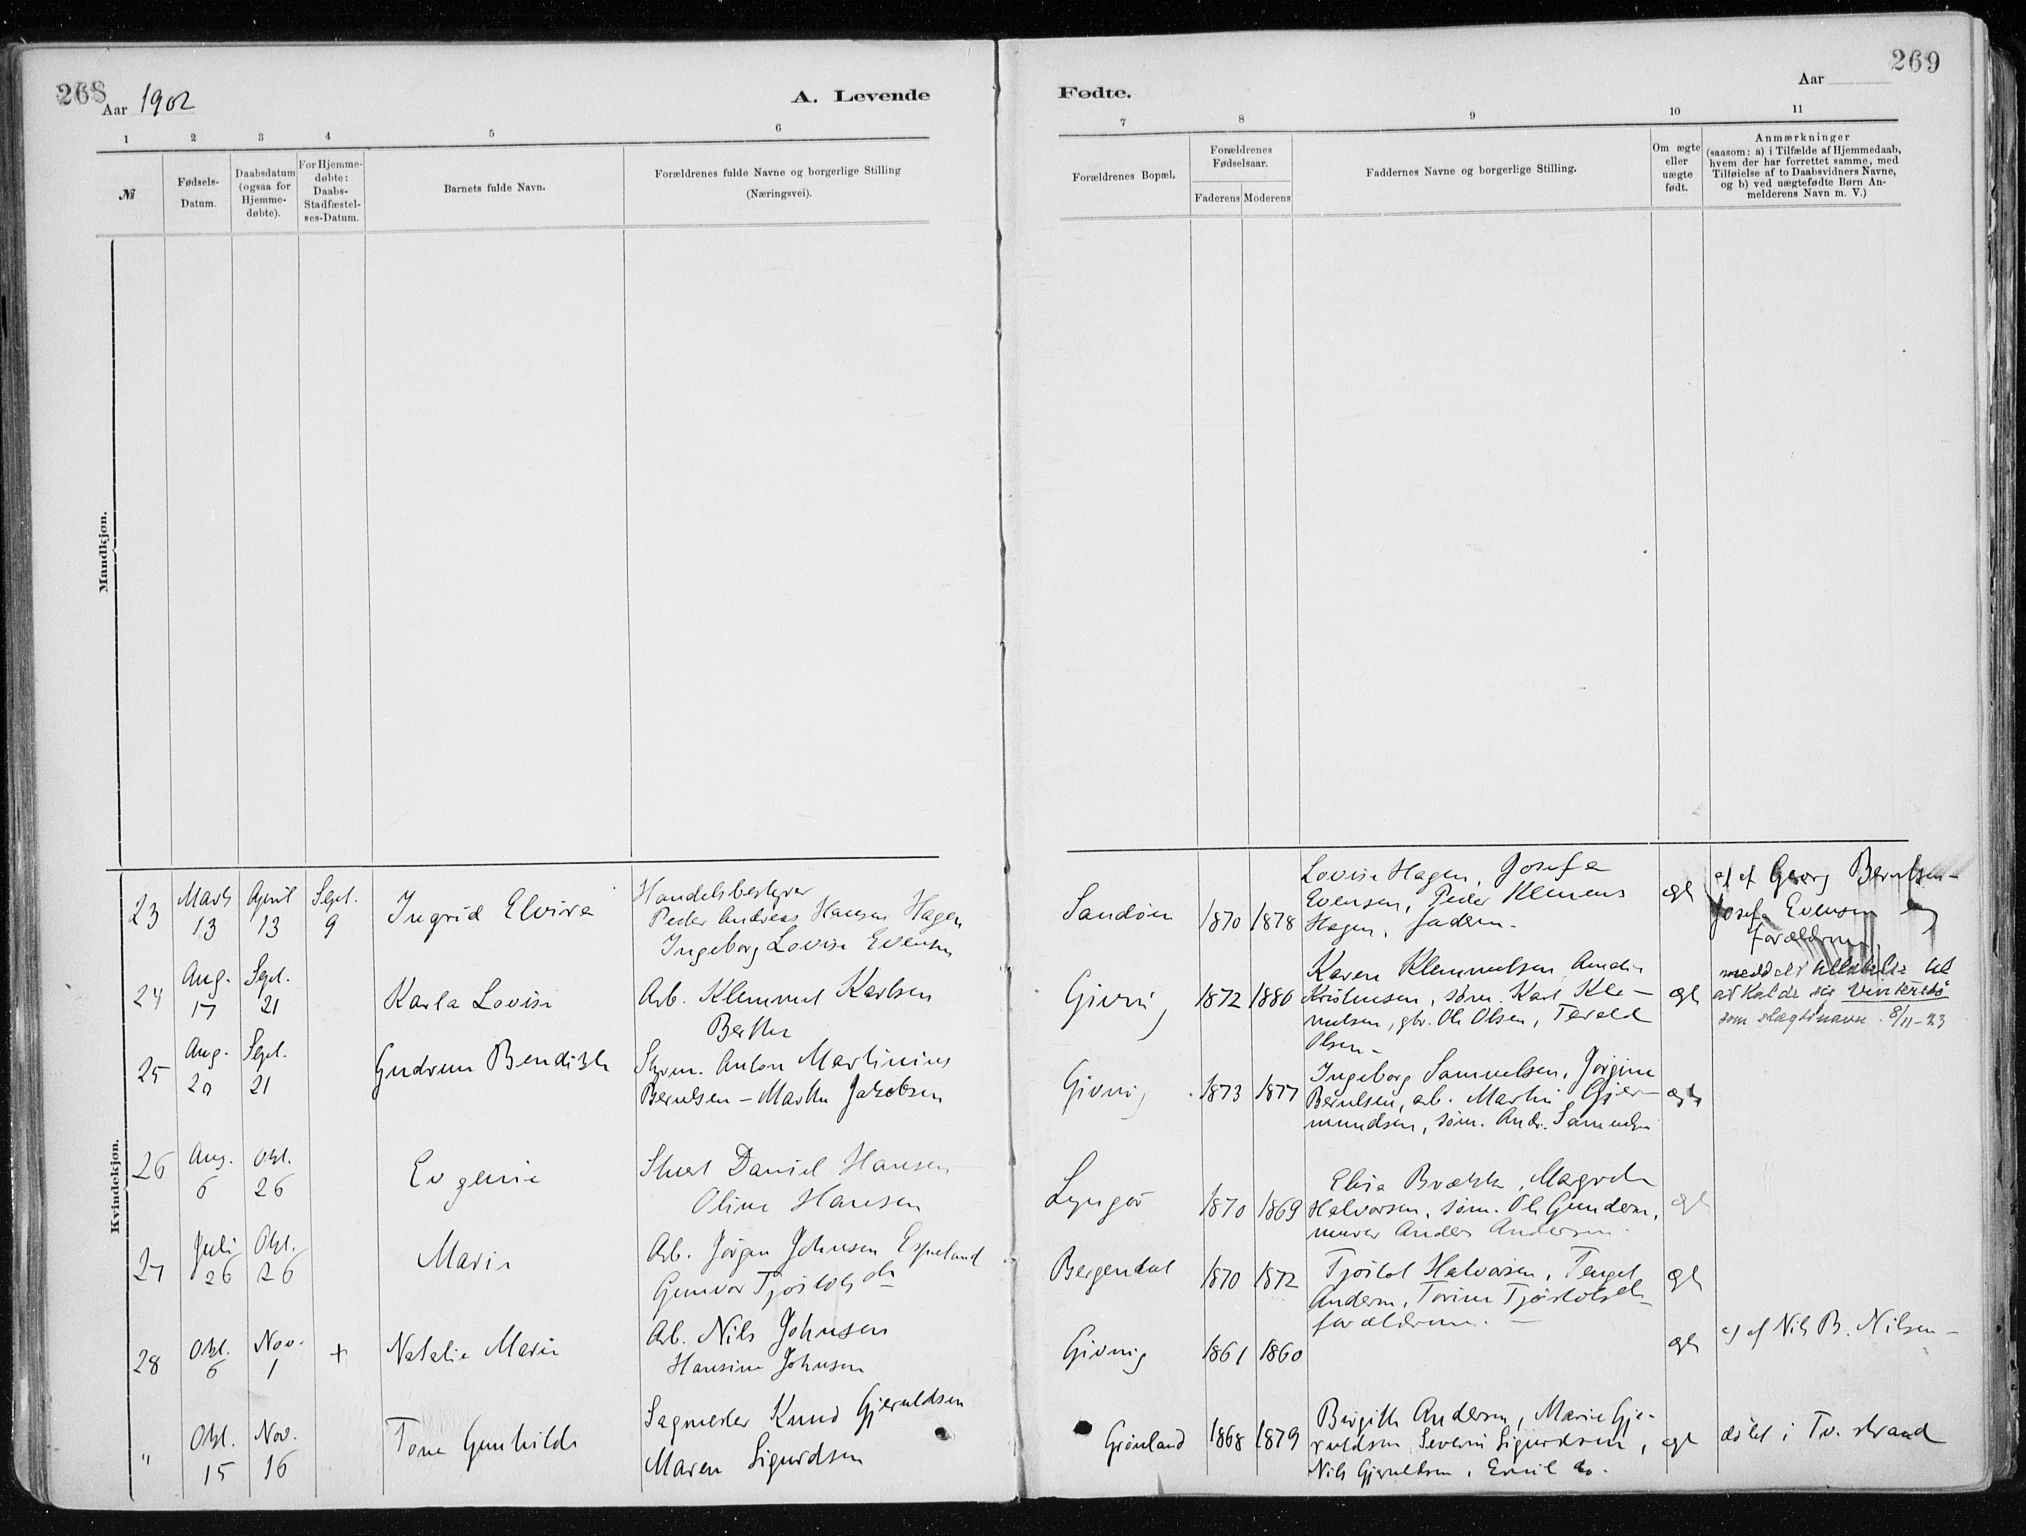 268
Aar 1902
A. Levende
1 2 3 4 5 6
№
Fødsels-
Datum.
Daabsdatum
(ogsaa for
Hjemme-
døbte).
For Hjemme-
døbte:
Daabs-
Stadfæstel-
ses-Datum.
Barnets fulde Navn.
Forældrenes fulde Navne og borgerlige Stilling
(Næringsvei).
Mandkjøn.
Kvindekjøn.
23 Marts 13 April 13 Sept. 9 Ingrid Elvira
Handelsbestyrer
Peder Andreas Hansen Hagen
Ingeborg Lovise Evensen
24 Aug. 17 Sept. 21 Karla Lovise
Arb. Klemmet Karlsen
Berthe
25 Aug. 20 Sept. 21 Gudrun Bendikte
Styrm. Anton Martinius
Berulsen – Marthe Jakobsen
26 Aug. 6 Okt. 26 Evgenie
Stuert Daniel Hansen
Oline Hansen
27 Juli 26 Okt. 26 Marie
Arb. Jørgen Johnsen Espeland
Gunvor Tjøstolsdtr
28 Okt. 6 Nov. 1 + Natalie Marie
Arb. Nils Johnsen
Hansine Johnsen
" Okt. 15 Nov. 16 Tone Gunhilde
Sagmester Knud Gjeruldsen
Maren Sigurdsen
269
Fødte.
Aar
7 8 9 10 11
Forældrenes Bopæl.
Forældrenes
Fødselsaar.
Faderens Moderens
Faddernes Navne og borgerlige Stilling.
Om ægte
eller
uægte
født.
Anmærkninger
(saasom: a) i Tilfælde af Hjemmedaab,
hvem der har forrettet samme, med
Tilføielse af to Daabsvidners Navne,
og b) ved uægtefødte Børn An-
melderens Navn m. V.)
Sandøen 1870 1878
Lovise Hagen, Josefa
Evensen, Peder Klemens
Hagen, faderen.
ægt
a) af Georg Berntsen –
Josefa Evensen og
forældrene
Giving 1872 1880
Karen Klemmetsen, Amalie
Kristensen, søm. Karl Kle-
metsen, gbr. Ole Olsen, Terald
Olsen –
ægt
meddelt tilladelse til
at kalde sig Vinterstø
som slægtsnavn. 8/11-23
Givving 1873 1877
Ingeborg Samuelsen, Jørgine
Berulsen, arb. Martin Gjer-
mundsen, søm. Andr. Samuelsen
ægt
Lyngør 1870 1869
Elise Brække, Magda
Halvorsen, søm. Ole Gundersen,
murer Anders Andersen
ægt
Bergendal 1870 1872
Tjøstol Halvorsen, Tengel
Andersen, Torine Tjøstolsdtr
forældrene. –
ægt
Givving 1861 1860
ægt
a) af Nils B. Nilsen –
Grønland 1868 1879
Birgitte Andersen, Marie Gje-
ruldsen, Severin Sigurdsen,
Nils Gjeruldsen, Emil do.
ægt
døbt i Tv. strand